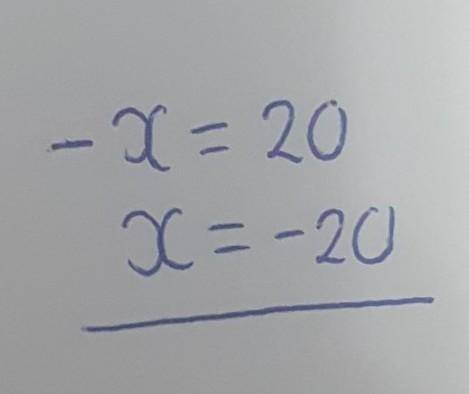 -x = 20
x = -20